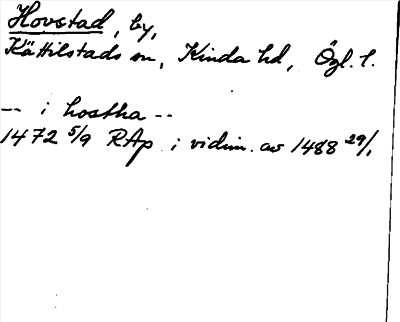 Hovstad, by,
Kättilstads sn, Kinda hd, Ögl. l.
-- i hostha --
1472 5/9 RAp i vidim. av 1488 29/1